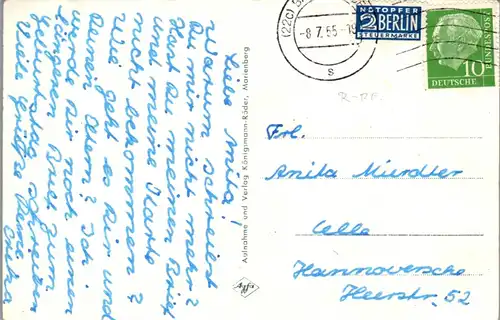 Liebe Anita!
Warum schreibst
Du mir nicht mehr?
Hast Du meinen Brief
und meine Karte
nicht bekommen?
Wie geht es Dir und
Deinen Eltern? Ich
werde Dir noch einen
langen Brief zum
Geburtstag schreiben
Viele Grüße Deine
Aufnahme und Verlag Königsmann-Röder, Marienberg
Agfa
(22c)
-8.7.55-
s
NOTOPFER
2 BERLIN
STEUERMARKE
10
DEUTSCHE
BUNDESPOST
Frl.
Anita Mürdter
Celle
Hannoversche
Heerstr. 52